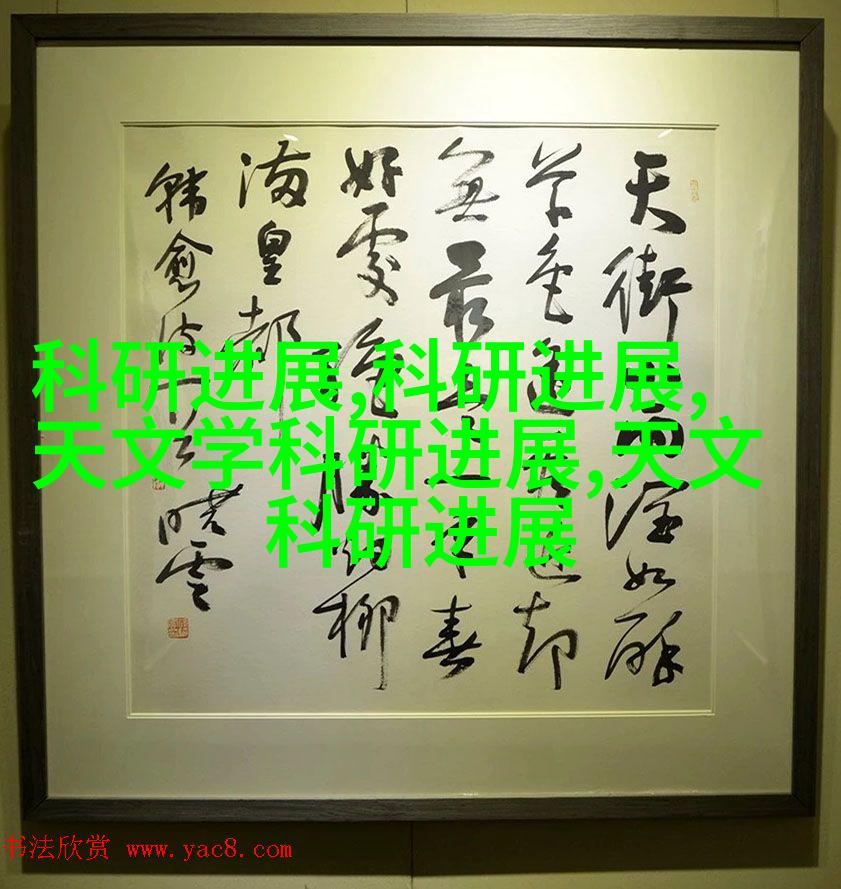 天街小雨润如酥
草色遥看近却
無最是一年春
好處绝勝烟柳
满皇都
韩愈诗一首
晓雲
科研进展,科研进展,
天文学科研进展,天文
科研进展
书法欣赏 www.yac8.com